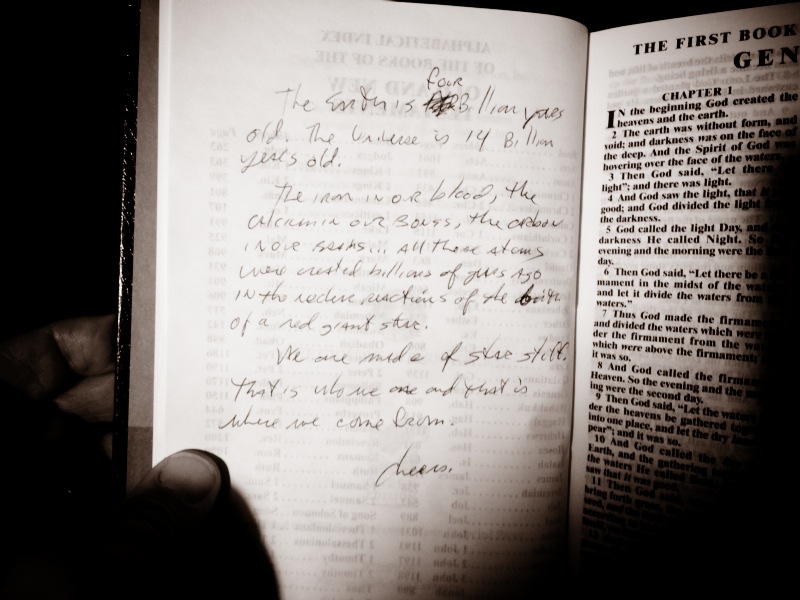 four
The Earth is Billion years
old. The Universe is 14 Billion
years old.
The iron in our blood, the
calcium in our bones, the carbon
in our brains... All these atoms
were created billions of years ago
in the nuclear reactions of the birth
of a red giant star.
We are made of star stuff.
That is who we are and that is
where we come from.
Cheers.
THE FIRST BOOK
GEN
CHAPTER 1
IN the beginning God created the
heavens and the earth.
2 The earth was without form, and
void; and darkness was on the face of
the deep. And the Spirit of God was
hovering over the face of the waters.
3 Then God said, "Let there
light"; and there was light.
4 And God saw the light, that it
good; and God divided the light
the darkness.
5 God called the light Day, and
darkness He called Night. So
evening and the morning were the
day.
6 Then God said, "Let there be a
mament in the midst of the wat
and let it divide the waters from
waters."
7 Thus God made the firmame
and divided the waters which were
der the firmament from the wa
which were above the firmament;
it was so.
8 And God called the firma
Heaven. So the evening and the
ing were the second day.
9 Then God said, "Let the wate
der the heavens be gathered to
into one place, and let the dry
pear"; and it was so.
10 And God called the
Earth, and the gathering
the waters He called
saw that it
11 Then God said
bring forth